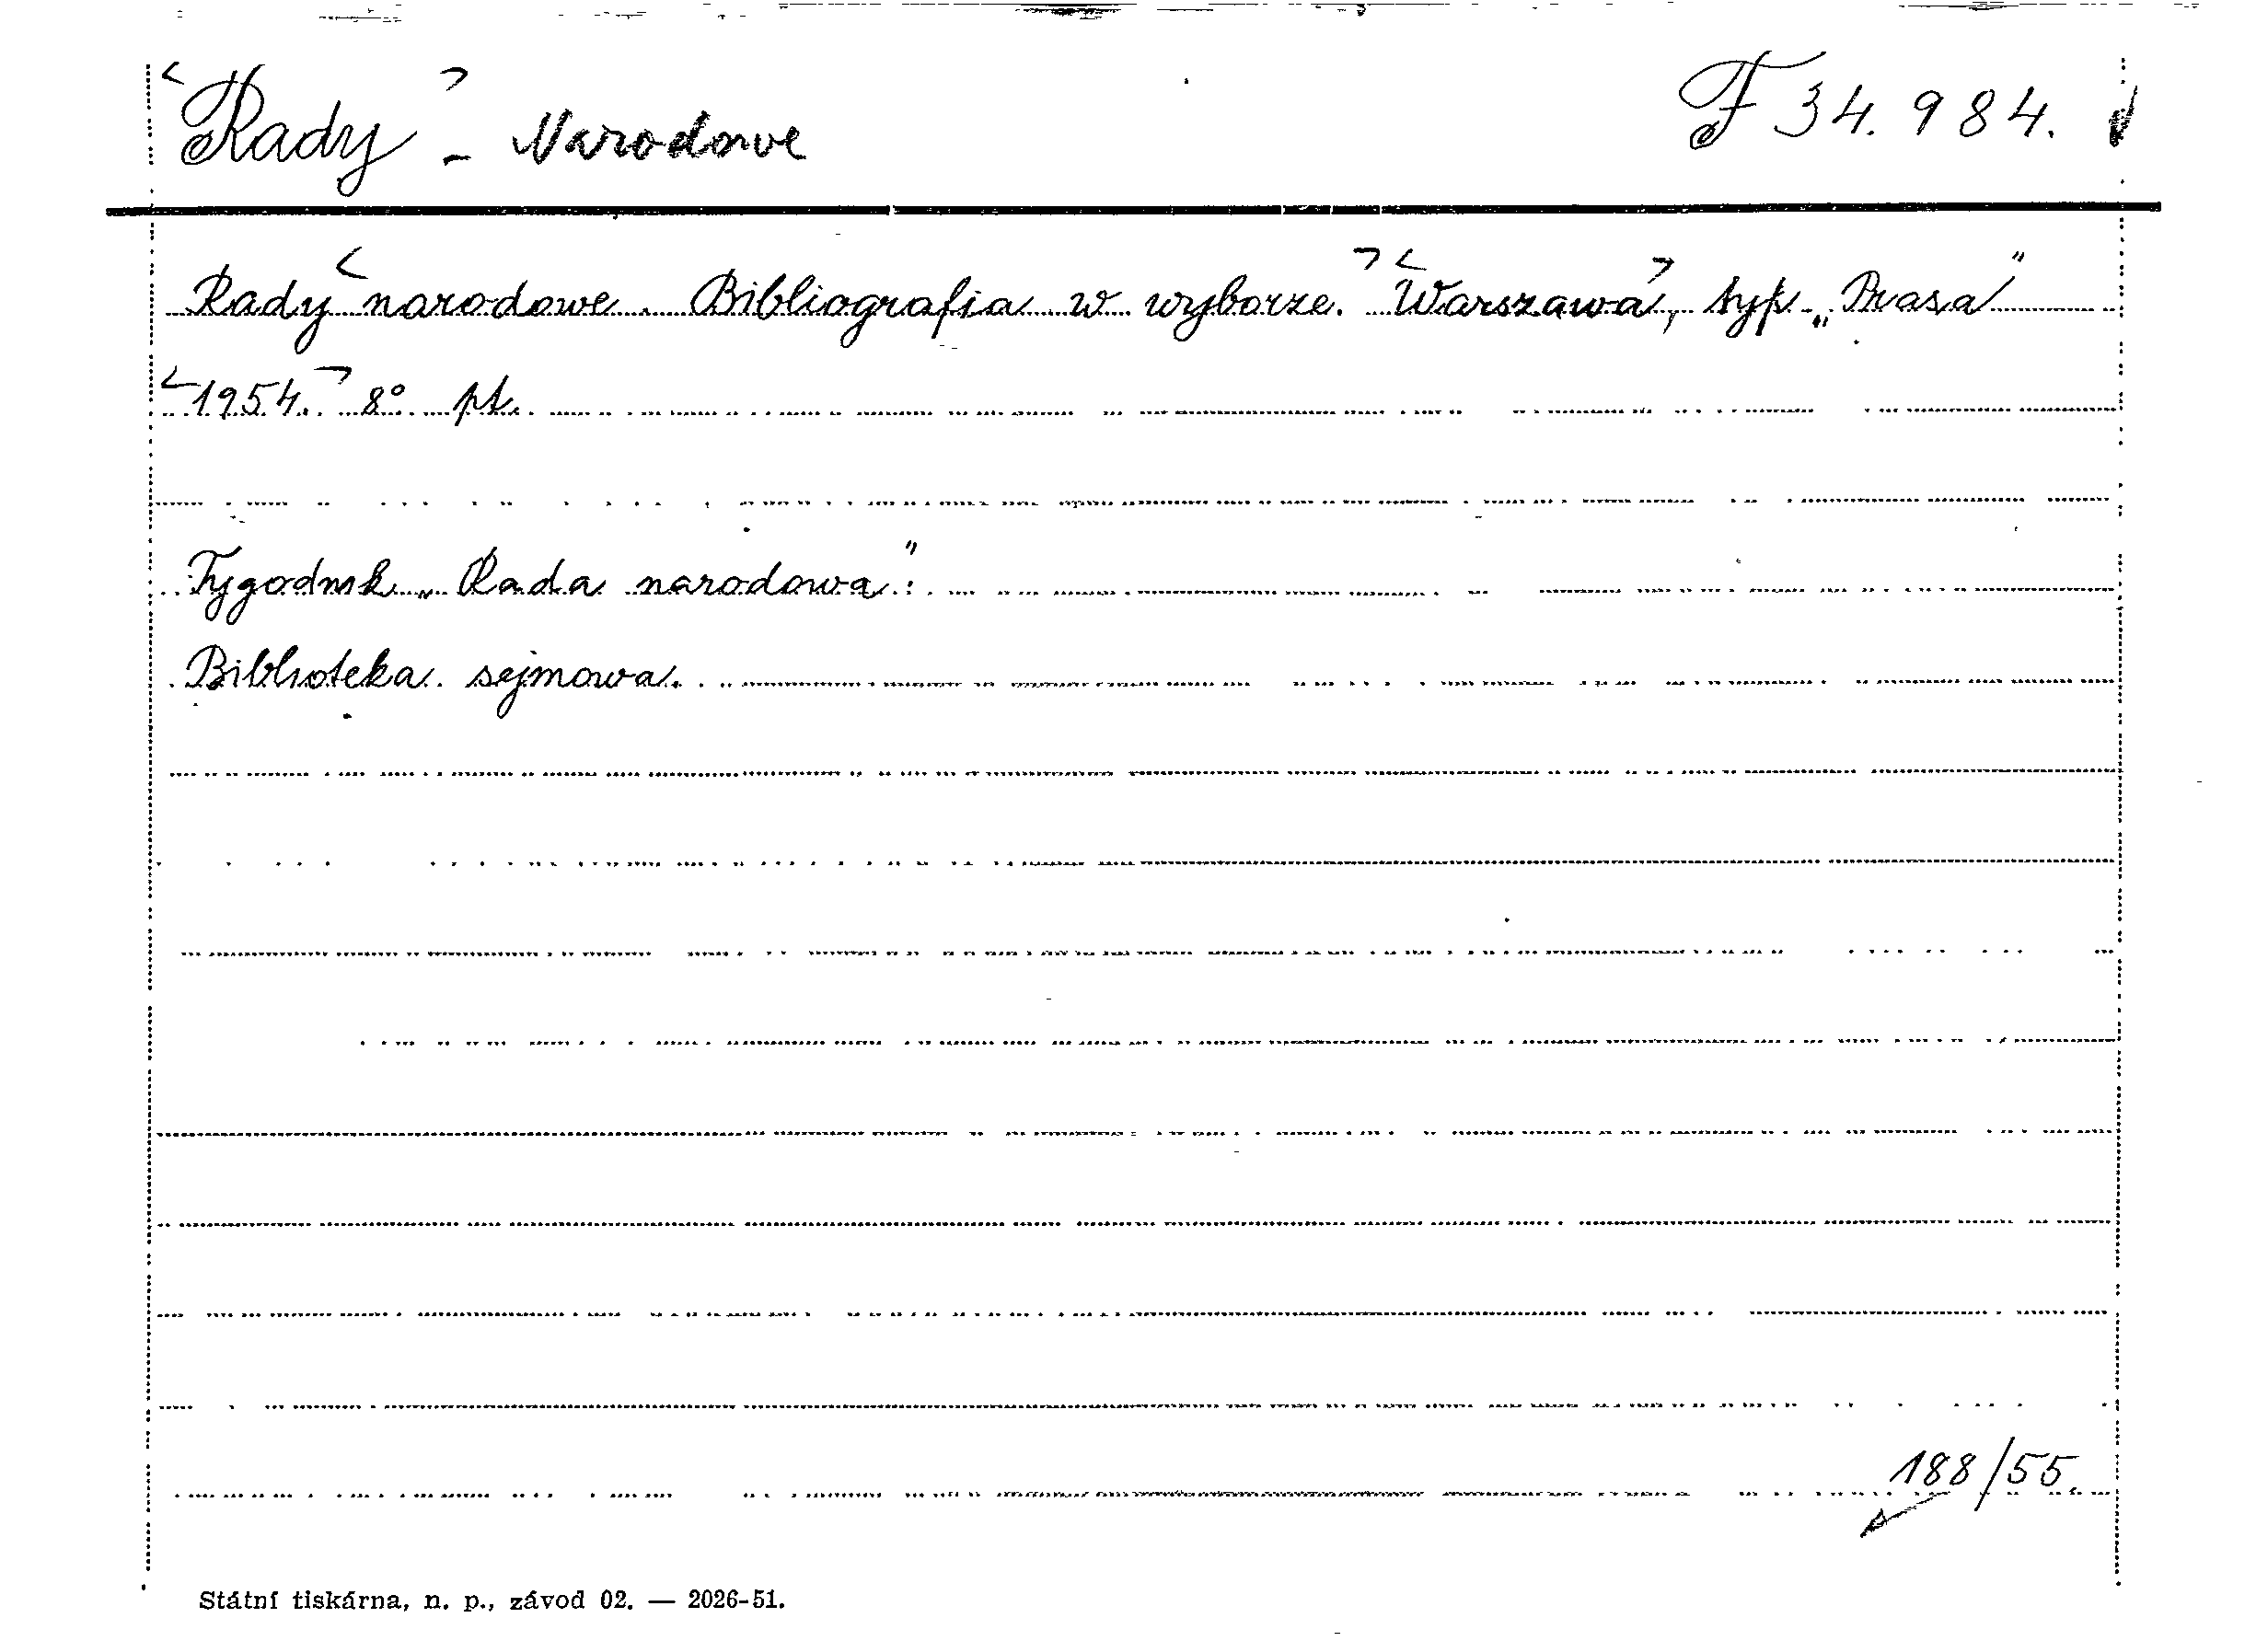 Rady - Narodowe F 34.984.
Rady narodowe. Bibliografia w wyborze. Warszawa, typ. „Prasa"
1954. 8° pt.
Tygodnik „Rada narodowa".
Biblioteka sejmowa.
188/55.
Státní tiskárna, n. p., závod 02. — 2026-51.